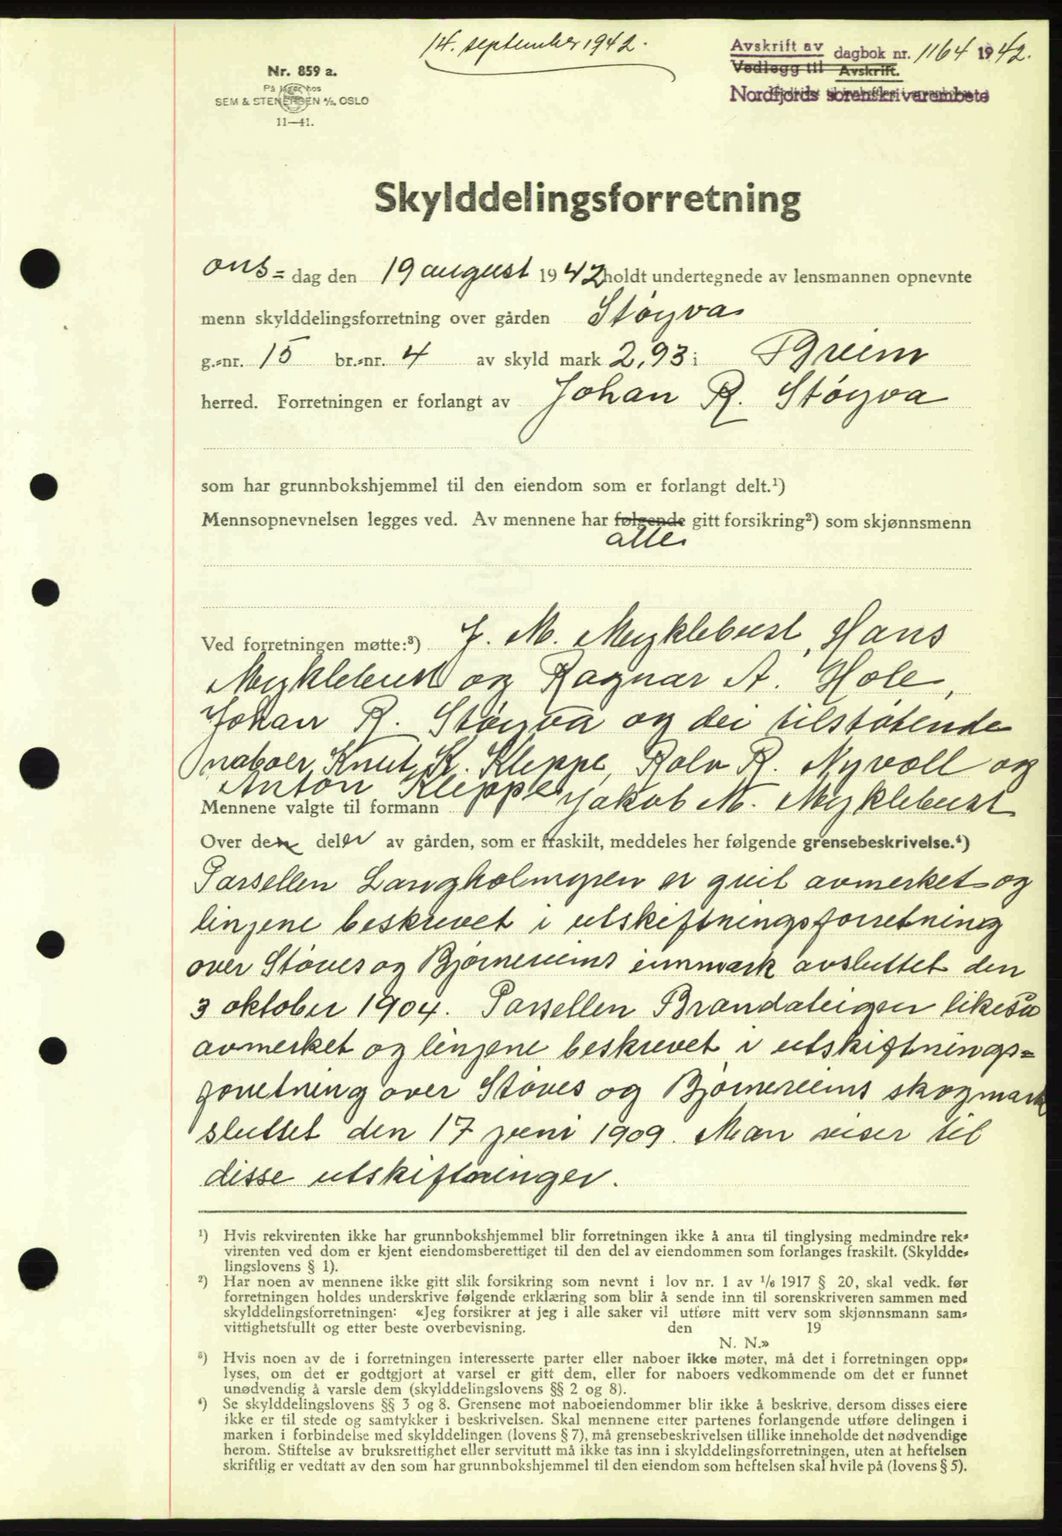 14. september 1942.
Avskrift av dagbok nr. 1164 1942.
Vedlegg til Avskrift.
Nordfjords sorenskriverembete
Nr. 859 a.
På lager hos
SEM & STENERSEN A/S, OSLO
11—41.
Skylddelingsforretning
ons= dag den 19 august 1942 holdt undertegnede av lensmannen opnevnte
menn skylddelingsforretning over gården Støyva
g.-nr. 15 br.-nr. 4 av skyld mark 2,93 i Breim
herred. Forretningen er forlangt av Johan R. Støyva
som har grunnbokshjemmel til den eiendom som er forlangt delt.¹)
Mennsopnevnelsen legges ved. Av mennene har følgende gitt forsikring²) som skjønnsmenn
alle
Ved forretningen møtte:³) J. M. Myklebust, Hans
Myklebust og Ragnar A. Hole,
Johan R. Støyva og dei tilstøtende
naboer Knut K. Kleppe, Rolv R. Nyvoll og
Anton Kleppe
Mennene valgte til formann Jakob M. Myklebust
Over den deler av gården, som er fraskilt, meddeles her følgende grensebeskrivelse.⁴)
Parsellen Langholmyren er greit avmerket og
linjene beskrevet i utskiftningsforretning
over Støves og Bjørnereims innmark avsluttet den
3 oktober 1904. Parsellen Brandateigen likeså
avmerket og linjene beskrevet i utskiftnings=
forretning over Støves og Bjørnereims skogmark
sluttet den 17 juni 1909. Man viser til
disse utskiftninger.
¹) Hvis rekvirenten ikke har grunnbokshjemmel blir forretningen ikke å anta til tinglysing medmindre rek-
virenten ved dom er kjent eiendomsberettiget til den del av eiendommen som forlanges fraskilt. (Skyldde-
lingslovens § 1).
²) Har noen av mennene ikke gitt slik forsikring som nevnt i lov nr. 1 av 1/6 1917 § 20, skal vedk. før
forretningen holdes underskrive følgende erklæring som blir å sende inn til sorenskriveren sammen med
skylddelingsforretningen: «Jeg forsikrer at jeg i alle saker vil utføre mitt verv som skjønnsmann sam-
vittighetsfullt og etter beste overbevisning. den 19
N. N.»
³) Hvis noen av de i forretningen interesserte parter eller naboer ikke møter, må det i forretningen opp-
lyses, om det er godtgjort at varsel er gitt dem, eller for naboers vedkommende om det er funnet
unødvendig å varsle dem (skylddelingslovens §§ 2 og 8).
⁴) Se skylddelingslovens §§ 3 og 8. Grensene mot naboeiendommer blir ikke å beskrive, dersom disses eiere
ikke er til stede og samtykker i beskrivelsen. Skal mennene etter partenes forlangende utføre delingen i
marken i forbindelse med skylddelingen (lovens § 7), må grensebeskrivelsen tillike inneholde det nødvendige
herom. Stiftelse av bruksrettighet eller servitutt må ikke tas inn i skylddelingsforretningen, uten at heftelsen
skriftlig er vedtatt av den som har grunnbokshjemmel til den eiendom som heftelsen skal hvile på (lovens § 5).